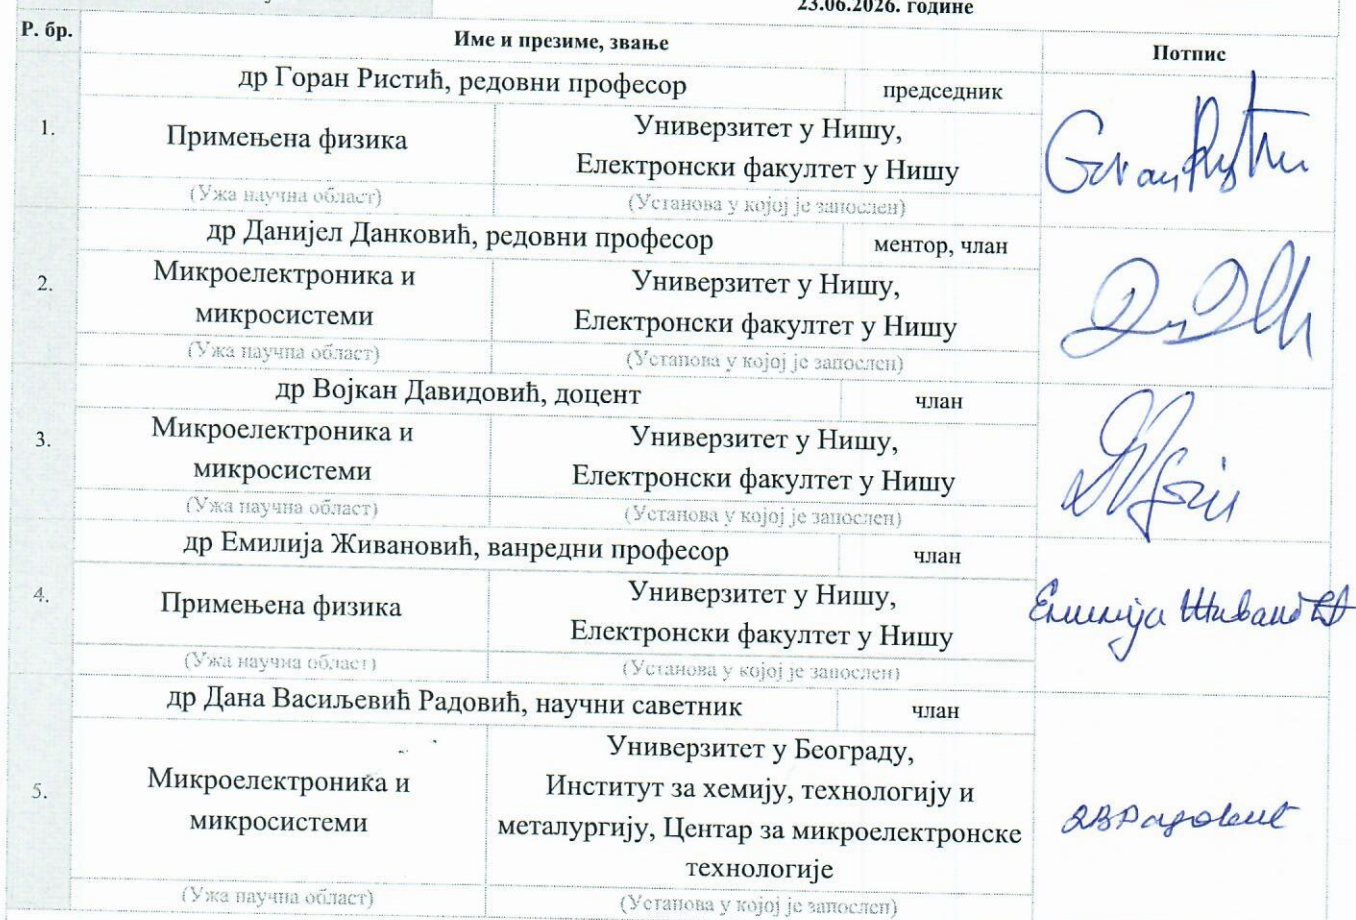 23.06.2026. године
Р. бр.
Име и презиме, звање
Потпис
др Горан Ристић, редовни професор
председник
1.
Примењена физика
Универзитет у Нишу,
Електронски факултет у Нишу
(Ужа научна област)
(Установа у којој је запослен)
др Данијел Данковић, редовни професор
ментор, члан
2.
Микроелектроника и
микросистеми
Универзитет у Нишу,
Електронски факултет у Нишу
(Ужа научна област)
(Установа у којој је запослен)
др Војкан Давидовић, доцент
члан
3.
Микроелектроника и
микросистеми
Универзитет у Нишу,
Електронски факултет у Нишу
(Ужа научна област)
(Установа у којој је запослен)
др Емилија Живановић, ванредни професор
члан
4.
Примењена физика
Универзитет у Нишу,
Електронски факултет у Нишу
Емилија Живановић
(Ужа научна област)
(Установа у којој је запослен)
др Дана Васиљевић Радовић, научни саветник
члан
5.
Микроелектроника и
микросистеми
Универзитет у Београду,
Институт за хемију, технологију и
металургију, Центар за микроелектронске
технологије
ДВРадовић
(Ужа научна област)
(Установа у којој је запослен)